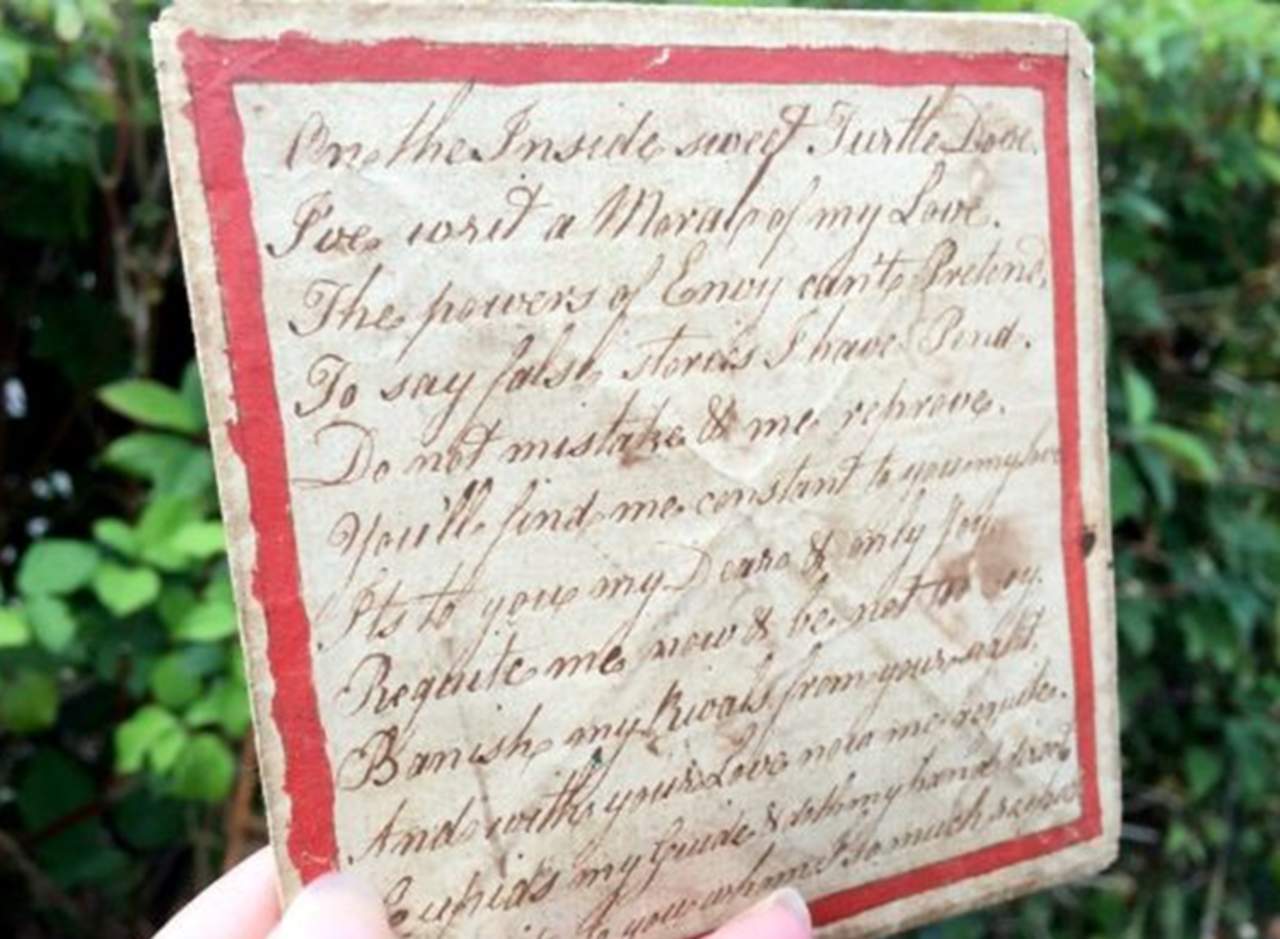 On the Inside sweet Turtle Dove.
I've writ a Moral of my Love.
The powers of Envy can't Pretend,
To say false stories I have Pend.
Do not mistake & me reprove.
You'll find me constant to you my love
Its to you my Deare & only Joy
Requite me now & be not coy.
Banish my Rivals from your
And with your Love now me requite.
Cupids my Guide & doth my hand
to you whome I so much